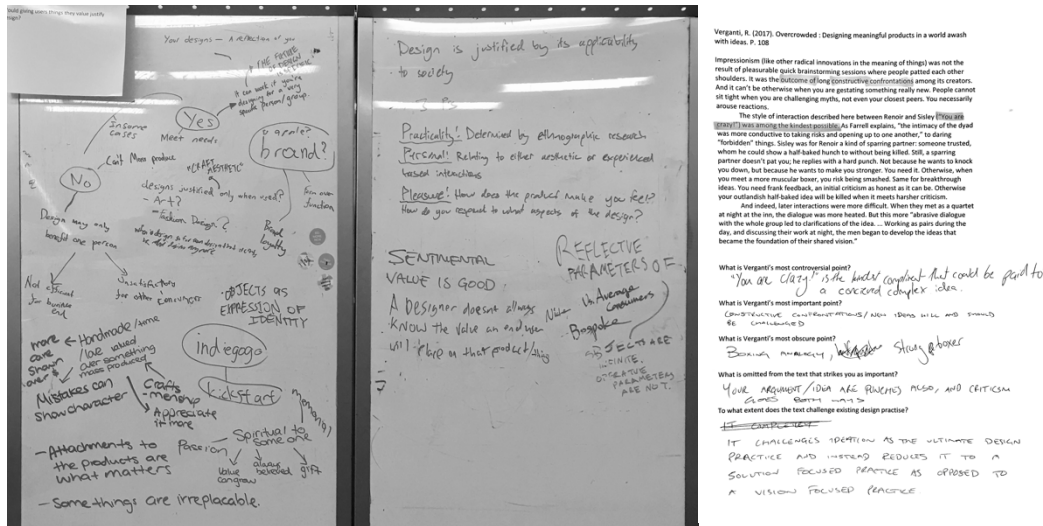 ould giving users things they value justify
Your designs – A reflection of you
THE FUTURE
OF DESIGN
It can work if you're
designing for a very
specific person/group.
Yes
In some
cases
Meet needs
apple?
brand?
Can't Mass produce
No
"CRAFT
AESTHETIC"
designs justified only when used?
- Art?
- Fashion Design?
form over
function
Brand
loyalty
Design may only
benefit one person
Not
for business
end
Unsatisfactory
for other consumers
OBJECTS AS
EXPRESSION OF
IDENTITY
more
care
shown
over
Handmade/time
/love valued
over something
mass produced
indiegogo
kickstart
Mistakes can
show character
Crafts
-menship
Appreciate
it more
memorial
Passion
Spiritual to
someone
Value
can grow
always
believed
gift
- Attachments to
the products are
what matters
- Some things are irreplacable.
Design is justified by its applicability
to society
3 P's
Practicality! Determined by ethnographic research
Personal! Relating to either aesthetic or experienced
based interactions
Pleasure! How does the product make you feel?
How do you respond to what aspects of the design?
SENTIMENTAL
VALUE IS GOOD.
A Designer doesn't always
know the value an end user
will place on that product/thing
REFLECTIVE
PARAMETERS OF
Average
Consumers
Niche
Bespoke
OBJECTS ARE
INFINITE.
PARAMETERS
ARE NOT.
Verganti, R. (2017). Overcrowded : Designing meaningful products in a world awash
with ideas. P. 108
Impressionism (like other radical innovations in the meaning of things) was not the
result of pleasurable quick brainstorming sessions where people patted each other
shoulders. It was the outcome of long constructive confrontations among its creators.
And it can't be otherwise when you are gestating something really new. People cannot
sit tight when you are challenging myths, not even your closest peers. You necessarily
arouse reactions.
The style of interaction described here between Renoir and Sisley ("You are
crazy!") was among the kindest possible. As Farrell explains, "the intimacy of the dyad
was more conducive to taking risks and opening up to one another," to daring
"forbidden" things. Sisley was for Renoir a kind of sparring partner: someone trusted,
whom he could show a half-baked hunch to without being killed. Still, a sparring
partner doesn't pat you; he replies with a hard punch. Not because he wants to knock
you down, but because he wants to make you stronger. You need it. Otherwise, when
you meet a more muscular boxer, you risk being smashed. Same for breakthrough
ideas. You need frank feedback, an initial criticism as honest as it can be. Otherwise
your outlandish half-baked idea will be killed when it meets harsher criticism.
And indeed, later interactions were more difficult. When they met as a quartet
at night at the inn, the dialogue was more heated. But this more "abrasive dialogue
with the whole group led to clarifications of the idea. ... Working as pairs during the
day, and discussing their work at night, the men began to develop the ideas that
became the foundation of their shared vision."
What is Verganti's most controversial point?
"You are crazy!" is the kindest compliment that could be paid to
a concieved complex idea.
What is Verganti's most important point?
CONSTRUCTIVE CONFRONTATIONS/NEW IDEAS WILL AND SHOULD
BE CHALLENGED
What is Verganti's most obscure point?
BOXING ANALOGY, Strong boxer
What is omitted from the text that strikes you as important?
YOUR ARGUMENT/IDEA ARE PUNCHES ALSO, AND CRITICISM
GOES BOTH WAYS
To what extent does the text challenge existing design practise?
IT CHALLENGES IDEATION AS THE ULTIMATE DESIGN
PRACTICE AND INSTEAD REDUCES IT TO A
SOLUTION FOCUSED PRACTICE AS OPPOSED TO
A VISION FOCUSED PRACTICE